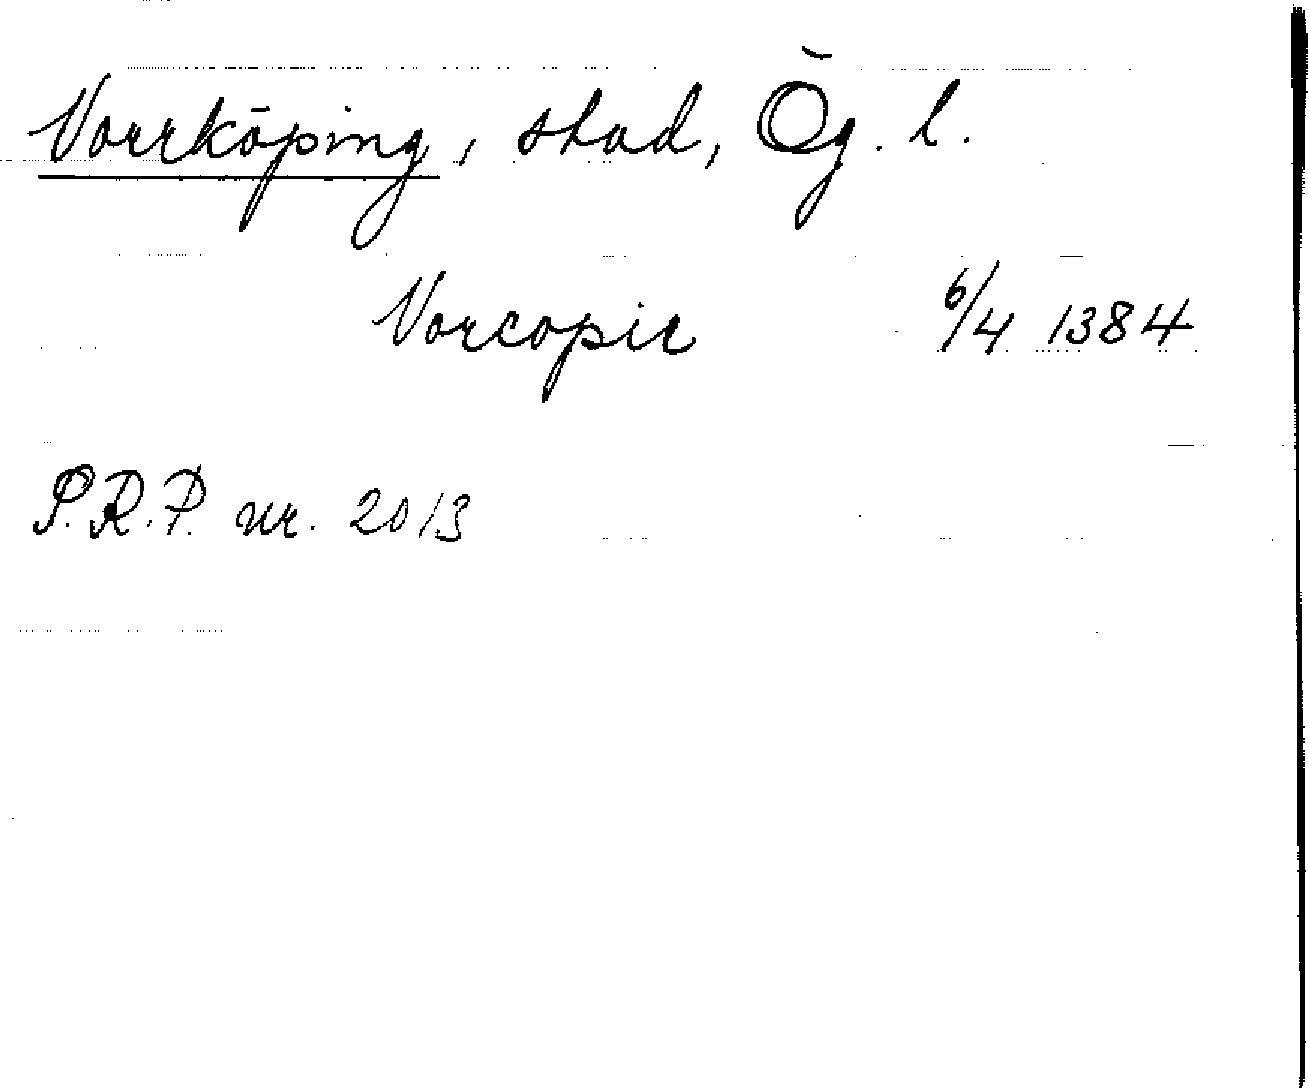 Norrköping, stad, Ög. l.
Norcopir 6/4 1384
S.R.P. nr. 2013